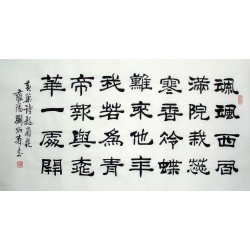 颯颯西風
滿院栽蕊
寒香冷蝶
難來他年
我若為青
帝報與桃
華一處開
黃巢詩題菊花
雍陽劉炳森書